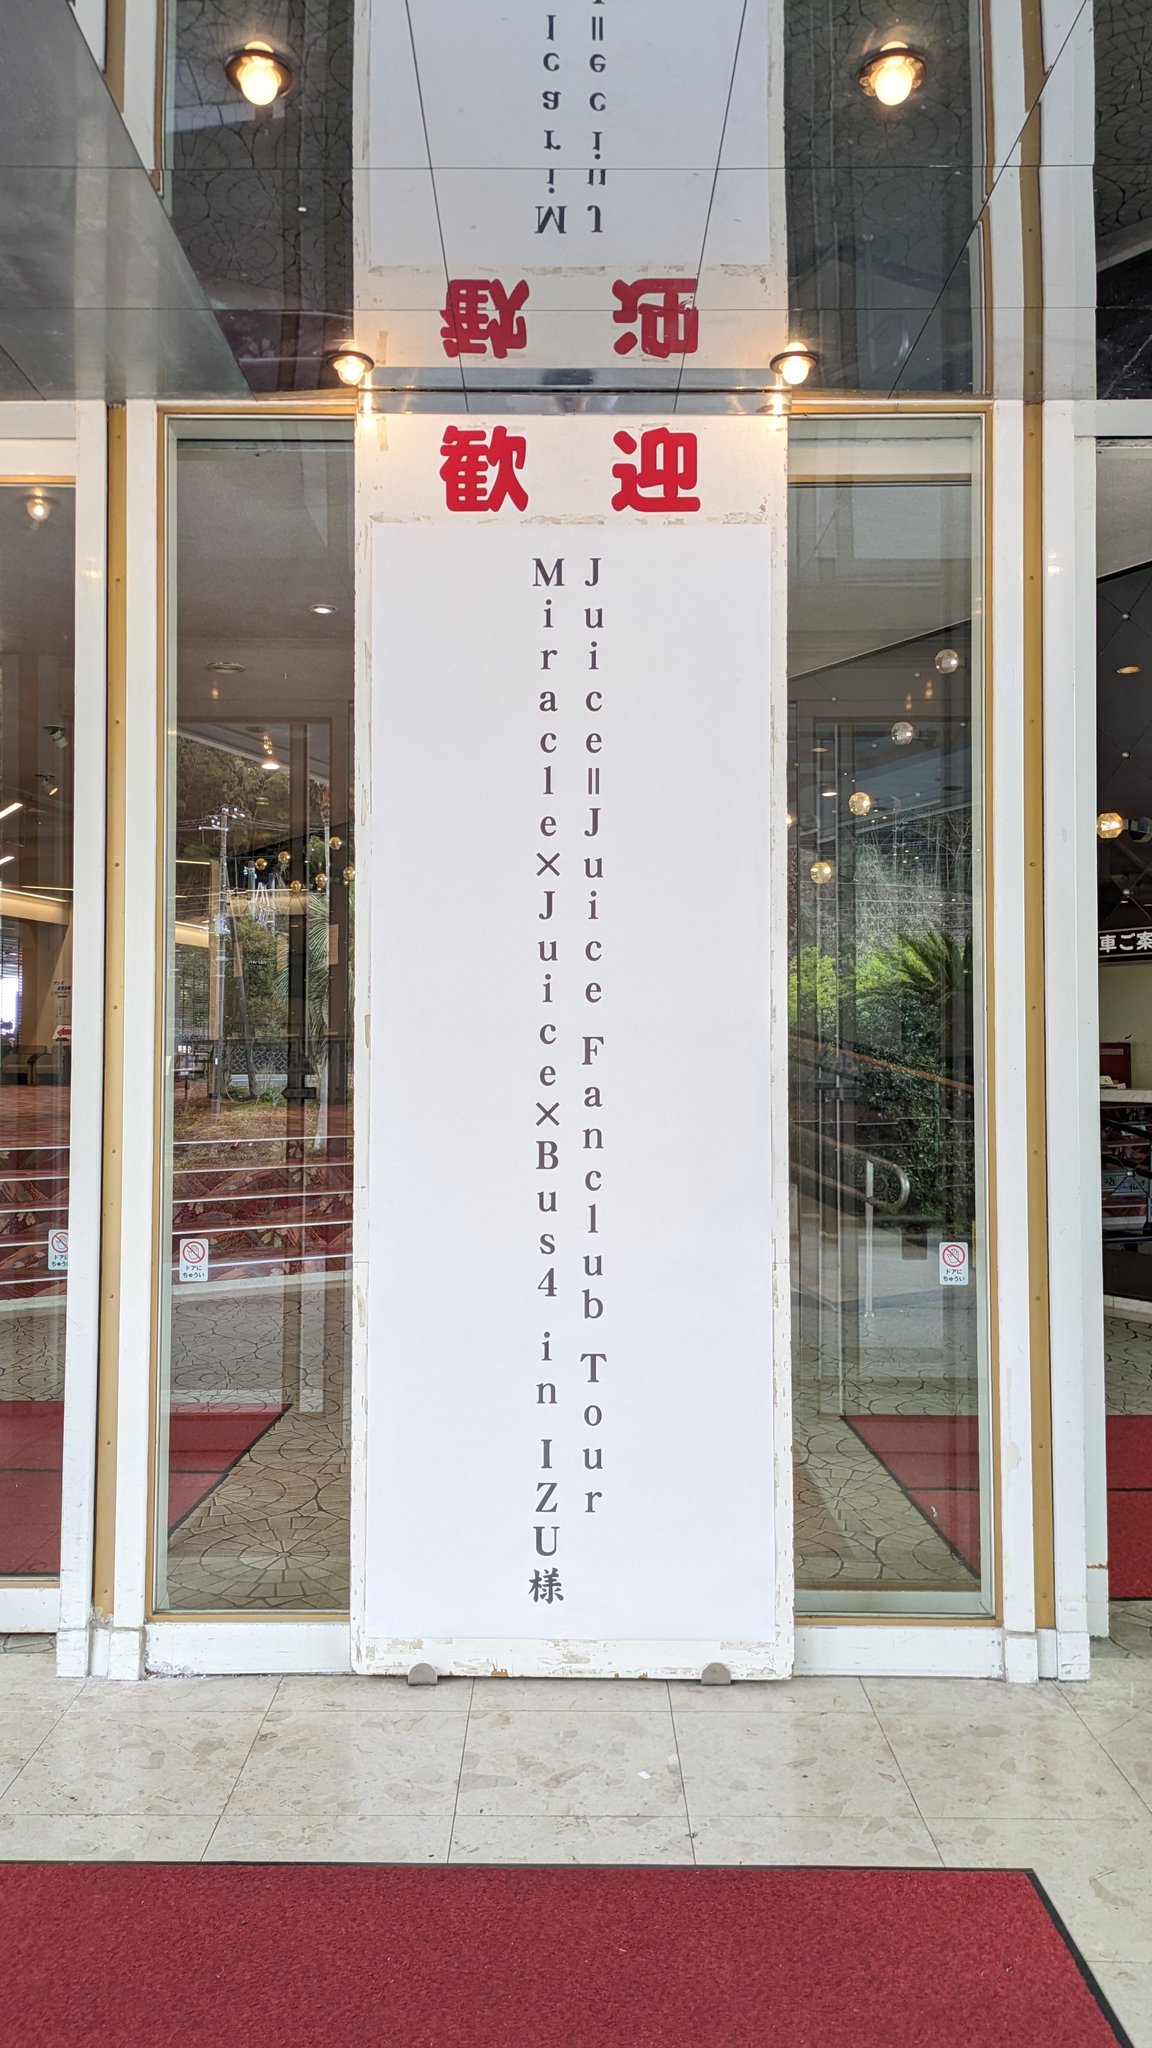 歓迎
Juice=Juice Fanclub Tour
Miracle×Juice×Bus4 in IZU様
車ご案
ドアに
ちゅうい
ドアに
ちゅうい
ドアに
ちゅうい